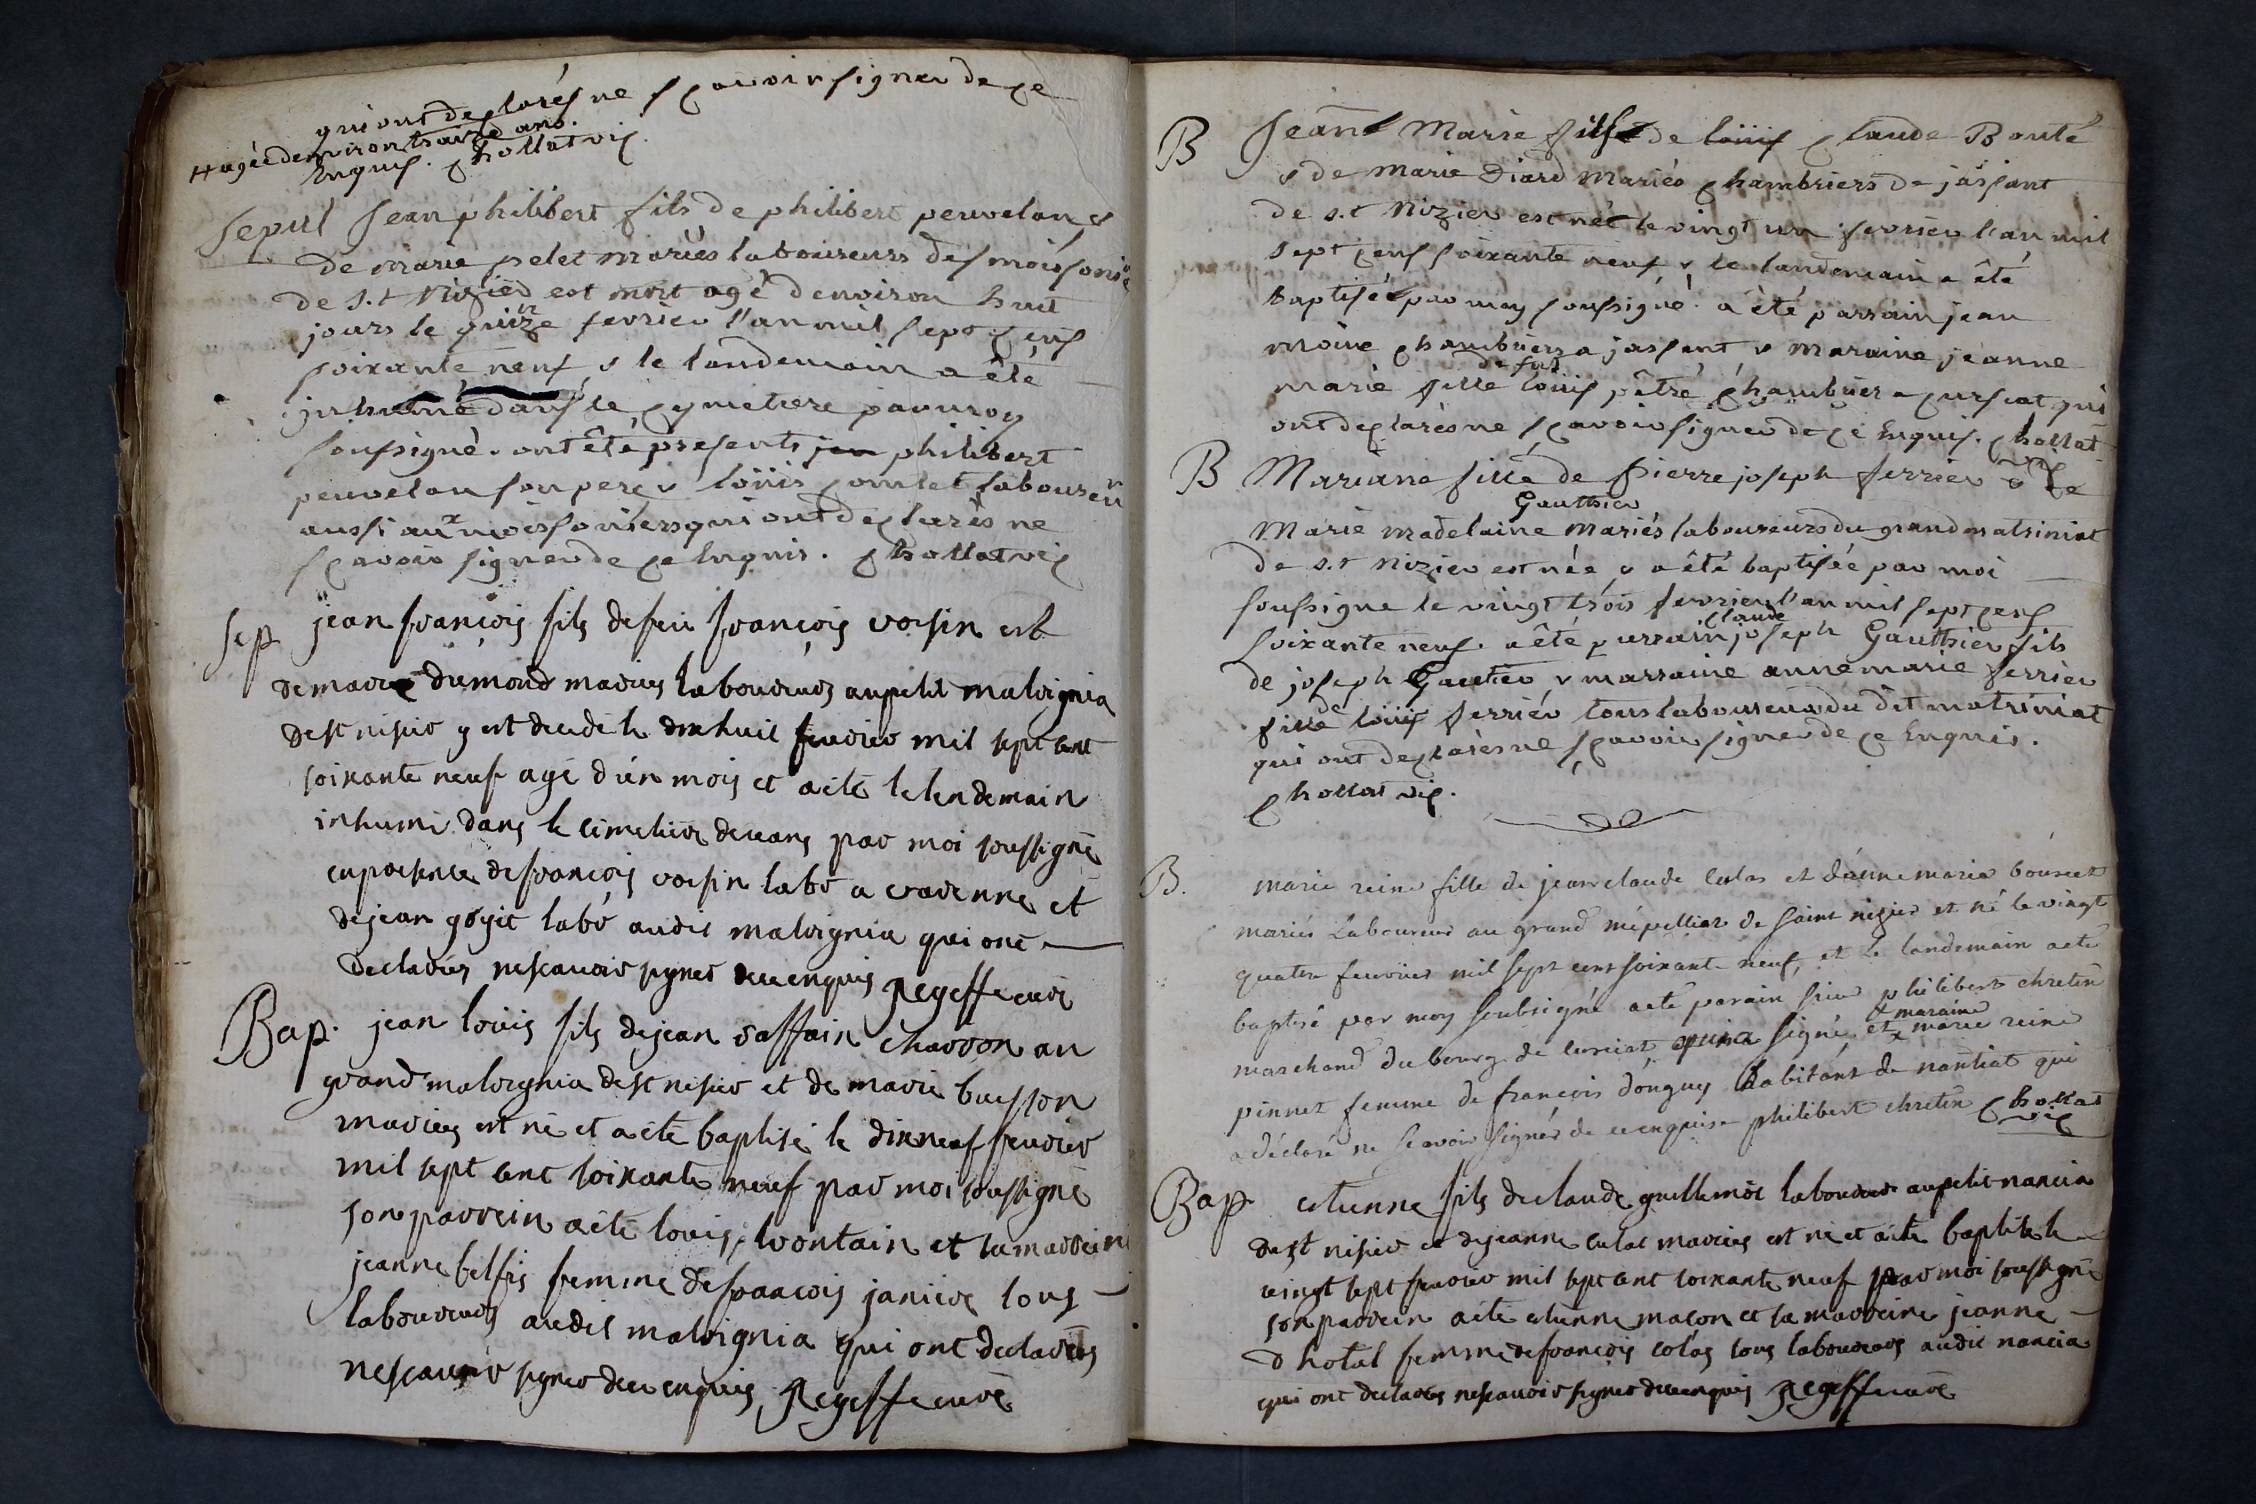 qui ont declarés ne sçavoir signer de ce
# agée denviron traize ans.
Enquis. Chollat vic
Sepul Jean philibert fils de philibert peuvelan &
de marie pelet mariés laboureurs des moissonie
de s.t Nizier est mort agé denviron huit
jours le quinze fevrier l'an mil sept cens
soixante neuf & le landemain a été
inhumé dans le cymetiere par moy
soussigné. ont été presents jean philibert
peuvelan son pere & loüis comlet laboureur
aussi aux moissoniers qui ont declarés ne
sçavoir signer de ce Enquis. Chollat vic
Sep jean françois fils de feu françois voisin et
de marie dumond mariés laboureurs au petit malrignia
de st nisier y est decedé le dix huit feuvrier mil sept cent
soixante neuf agé d'un mois et a été le lendemain
inhumé dans le cimetiere de ceans par moi soussigné
en presence de françois voisin labr a varenne et
de jean gogic labr audit malrignia qui ont
declarés ne scavoir signer de ce enquis Regeffe curé
Bap. jean loüis fils de jean saffain charron au
grand malrignia de st nisier et de marie buisson
mariés est né et a été baptisé le dixneuf feuvrier
mil sept cent soixante neuf par moi soussigné
son parrein a été louis trontain et sa marreine
jeanne belfis femme de françois janier tous
laboureurs audit malrignia qui ont declarés
ne scavoir signer de ce enquis Regeffe curé
B Jeane Marie fille de loüis Claude Bonté
& de Marie Diard Mariés Chambriers de jassant
de s.t Nizier est née le vingt un fevrier l'an mil
sept cens soixante neuf & le landemain a été
baptisée par moy soussigné. a été parrain jean
moine chambrier a jassant & maraine jeanne
de fut
marie fille loüis pêtré Chambrier a curciat qui
ont declarés ne sçavoir signer de ce Enquis. Chollat
vic
B Mariane fille de Pierre joseph ferrier & de
Gautthier
Marie Madelaine Mariés laboureurs du grand matriniat
de s.t Nizier est née & a été baptisée par moi
soussigne le vingt trois fevrier l'an mil sept cens
claude
soixante neuf. a été parrain joseph Gautthier fils
de joseph Gautier & marraine anne marie ferrier
de
fille loüis ferriér tous laboureurs du dit matriniat
qui ont declarés ne sçavoir signer de ce Enquis.
Chollat vic.
B. marie reine fille de jean claude culas et d'anne marie bourcet
mariés Laboureur au grand mépelliat de saint nizier et né le vingt
quatre feuvrier mil sept cent soixante neuf, et le landemain a eté
baptisé par moy soubsigné a eté parain sieur philibert chretin
& maraine
marchand du bourg de curciat qui a signé, et marie reine
pinnet femme de françois donguy habitant de nantiat qui
a déclaré ne scavoir signer de ce enquise philibert chretin Chollat
vic
Bap etienne fils de claude guillemot laboureur au petit nancia
de st nisier et de jeanne culat mariés est né et a été baptisé le
vingt sept feuvrier mil sept cent soixante neuf par moi soussigné
son parrein a été etienne maçon et sa marreine jeanne
d hotal femme de françois colas tous laboureurs audit nancia
qui ont declarés ne scavoir signer de ce enquis Regeffe curé